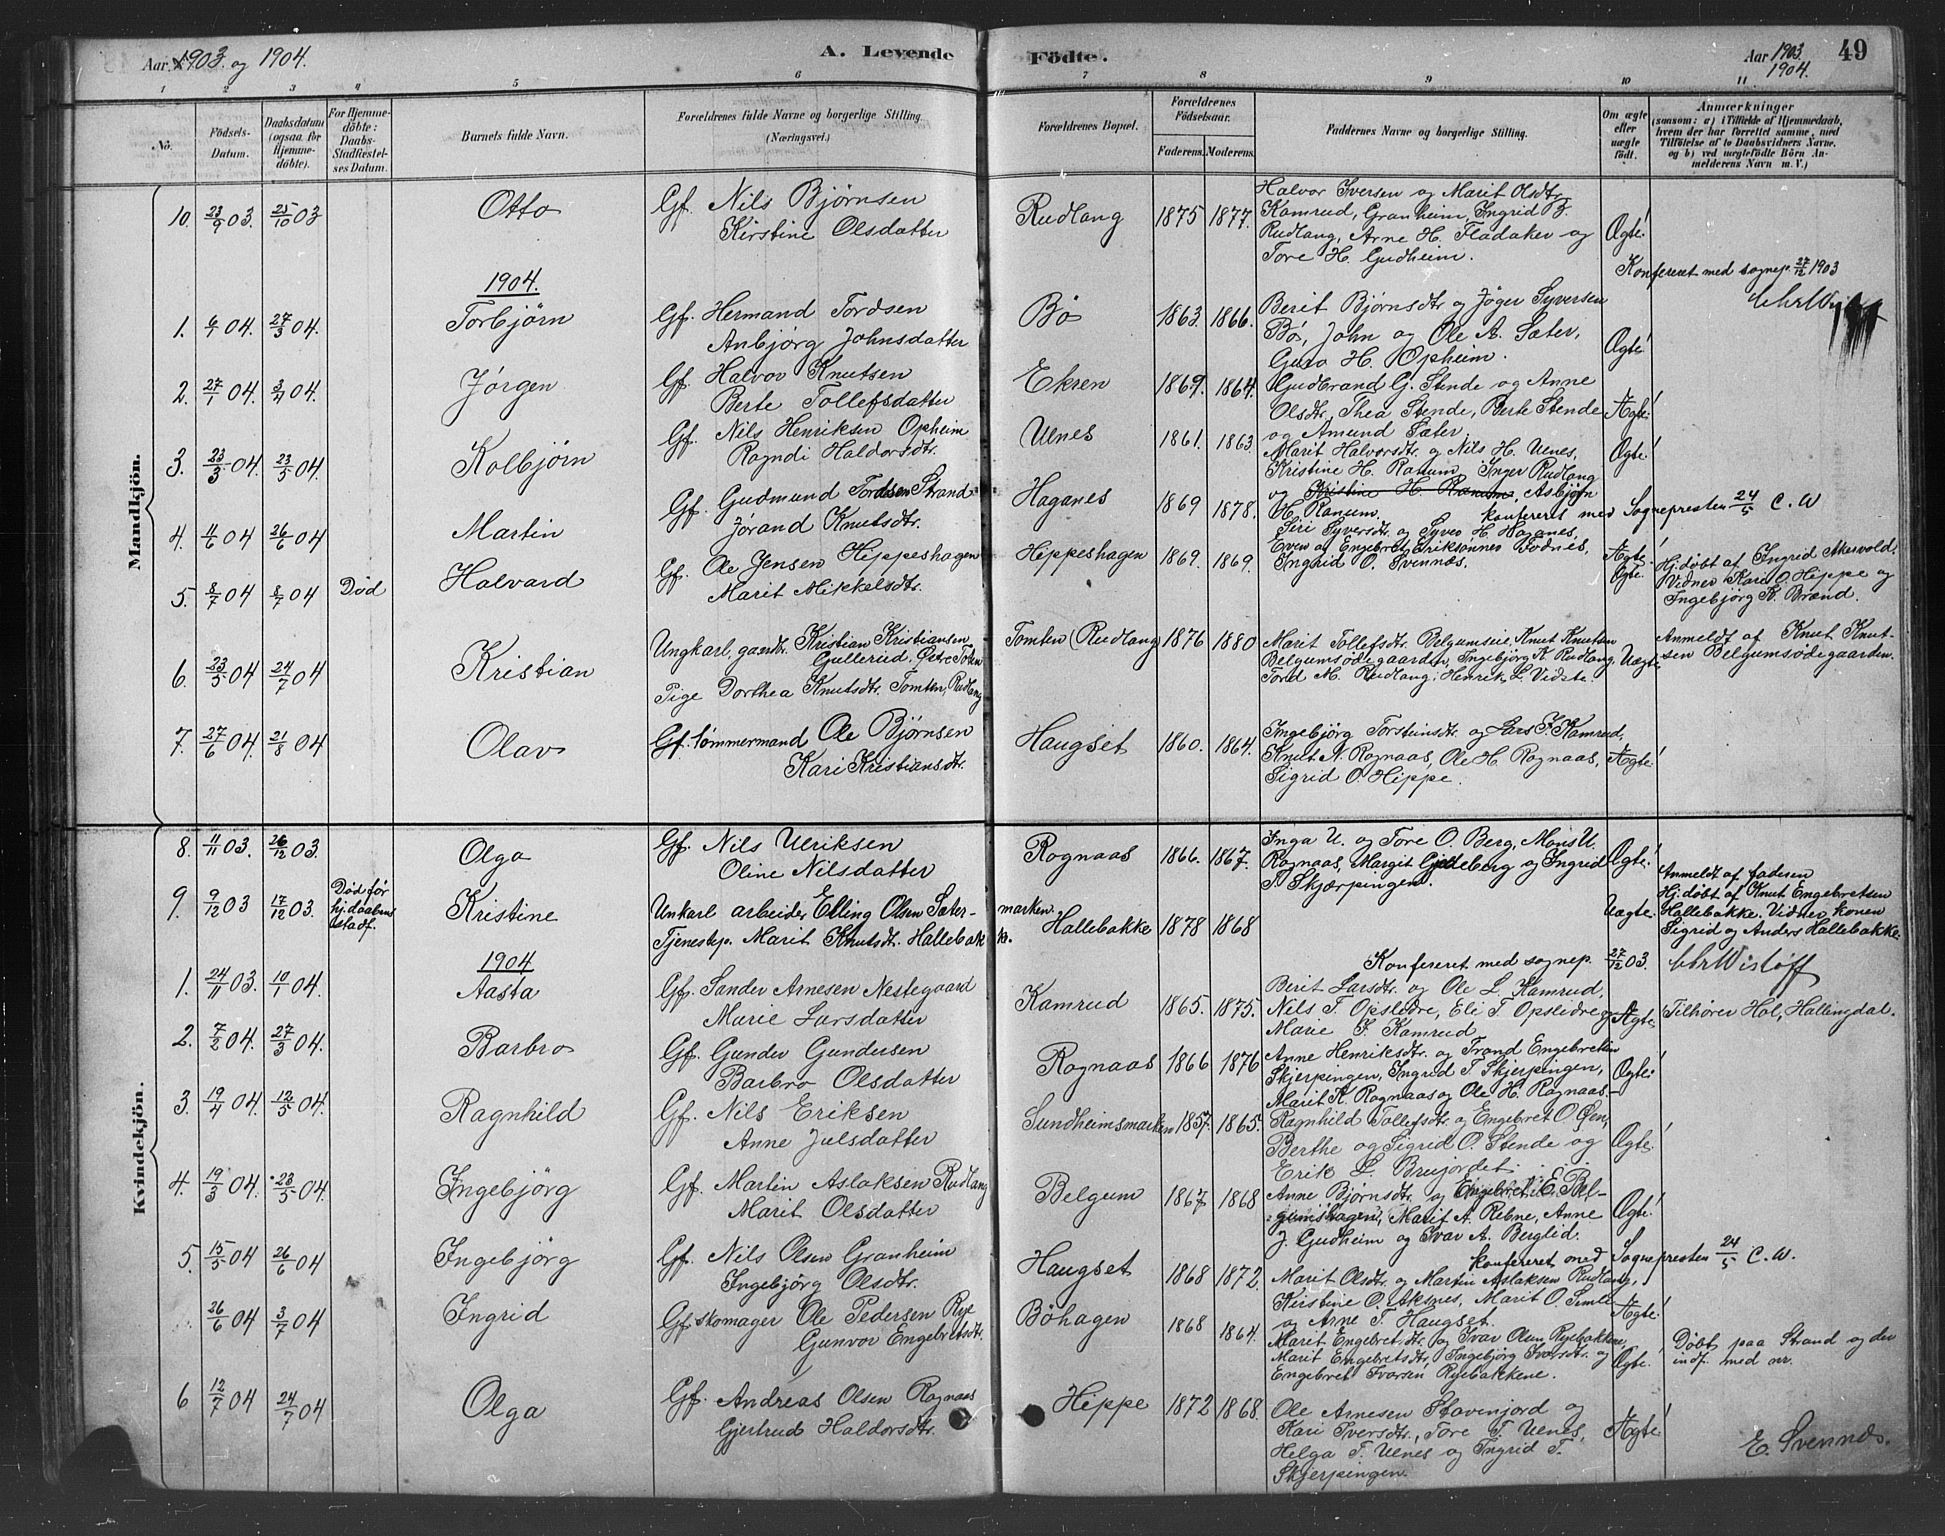 Aar 1903 og 1904.
A. Levende
Födte.
Aar 1903
1904.
49
1 2 3 4 5 6 7 8 9 10 11
No.
Födsels-
Datum.
Daabsdatum
(ogsaa for
Hjemme-
döbte).
For Hjemme-
döbte:
Daabs-
Stadfæstel-
ses Datum.
Barnets fulde Navn.
Forældrenes fulde Navne og borgerlige Stilling.
(Næringsvei.)
Forældrenes Bopæl.
Forældrenes
Födselsaar.
Faderens. Moderens.
Faddernes Navne og borgerlige Stilling.
Om ægte
eller
uægte
födt.
Anmærkninger
(saasom: a) i Tilfælde af Hjemmedaab,
hvem der har forrettet samme, med
Tilföielse af to Daabsvidners Navne,
og b) ved uægtefödte Börn An-
melderens Navn m. V.)
Mandkjön.
10. 23/9 03. 25/10 03 Otto Gf. Nils Bjørnsen
Kirstine Olsdatter
Rudlang 1875 1877.
Halvor Iversen og Marit Olsdtr.
Kamrud, Granheim, Ingrid B.
Rudlang, Arne H. Fladaker og
Tore H. Gudheim.
Ægte!
Konfereret med sognep. 27/12 1903
1904.
1. 6/1 04. 27/3 04. Torbjörn Gf. Hermand Tordsen
Anbjørg Johnsdatter
Bö 1863. 1866.
Berit Bjørnsdtr. og Jöger Syversen
Bö, John og Ole A. Sæter,
Guro H. Opheim.
Ægte!
2. 27/1 04. 3/4 04. Jørgen Gf. Halvor Knutsen
Berte Tollefsdatter
Ekren 1869. 1864.
Gudbrand G. Stende og Anne
Olsdtr. Thea Stende, Berte Stende
og Amund Sæter.
Ægte!
3. 23/3 04. 23/5 04. Kolbjörn Gf. Nils Henriksen Opheim
Rogndi Haldorsdtr.
Ulnes 1861. 1863
Marit Halvorsdtr. og Nils H. Ulnes,
Kristine H. Ranum, Inger Rudlang
og Kristine H. Ranum, Asbjørn
H. Ranum.
Ægte!
konfereret med Sognepresten 24/5 C. W
4. 11/6 04 26/6 04 Martin Gf. Gudmund Tordsen Strand
Jörand Knutsdtr.
Haganes 1869 1878.
Siri Syversdtr. og Syver H. Haganes,
Even og Engebret Eriksønner Fodnes,
Ingrid O. Svennæs.
Ægte!
5. 8/7 04 8/7 04 Död Halvard Gf. Ole Jensen Hippeshagen
Marit Mikkelsdtr.
Hippeshagen 1869. 1869.
Ægte.
Hj.döbt af Ingrid Akervold.
Vidner Kari O. Hippe og
Ingebjörg K. Brænd.
6. 23/5 04 24/7 04 Kristian Ungkarl, gaardbr. Kristian Kristiansen
Gullerud, Østre Toten
Pige Dorthea Knutsdtr. Tomten, Rudlang
Tomten (Rudlang) 1876 1880
Marit Tollefsdtr. Belgumseie, Knut Knutsen
Belgumsödegaarden, Ingebjörg K. Rudlang.
Tord M. Rudlang, Henrik L. Vidste.
Uægte
Anmeldt af Knut Knut-
sen Belgumsödegaarden.
7. 27/6 04. 21/8 04 Olav Gf. tømmermand Ole Bjørnsen
Kari Kristiansdtr.
Haugset 1860. 1864.
Ingebjörg Torsteinsdtr. og Lars F. Kamrud,
Knut N. Rognaas, Ole H. Rognaas,
Sigrid O. Hippe.
Ægte!
Kvindekjön.
8. 11/11 03. 26/12 03. Olga Gf. Nils Ulriksen
Oline Nilsdatter
Rognaas 1866. 1867.
Inga U. og Tore O. Berg, Mons U.
Rognaas, Margit Gjeldeberg og Ingrid
T. Skjærpingen.
Ægte!
9. 9/12 03 17/12 03. Död før
hj.daabens
stadf.
Kristine Unkarl arbeider Elling Olsen Sæter-
marken.
Tjenestep. Marit Knutsdtr. Hallebakk
k.
Hallebakke 1878 1868
Uægte.
Anmeldt af faderen
Hj.döbt af Knut Engebretsen
Hallebakke. Vidner konen
Sigrid og Anders Hallebakke.
Konfereret med sognep. 27/12 03. Chr Wisløff
1904
1. 24/11 03. 10/1 04. Aasta Gf. Sander Arnesen Nestegaard
Marie Larsdatter
Kamrud 1865. 1875.
Berit Larsdtr. og Ole L. Kamrud,
Nils T. Opsledre, Eli T. Opsledre og
Marie F. Kamrud
Ægte!
Tilhörer Hol, Hallingdal.
2. 7/2 04. 27/3 04. Barbro Gf. Gunder Gundersen
Barbro Olsdatter
Rognaas 1866 1876
Anne Henriksdtr. og Trand Engebretsen
Skjerpingen, Ingrid T. Skjerpingen,
Marit K. Rognaas og Ole H. Rognaas.
Ægte!
3. 19/4 04. 12/5 04. Ragnhild Gf. Nils Eriksen
Anne Julsdatter
Sundheimsmarken 1857. 1865.
Ragnhild Tollefsdtr. og Engebret O. Øen,
Berthe og Sigrid O. Stende og
Erik L. Brujordet.
Ægte!
4. 19/3 04. 23/5 04. Ingebjörg Gf. Martin Aslaksen Rudlang
Marit Olsdatter
Belgum 1867 1868
Anne Bjørnsdtr. og Engebret E. Bel-
gumshagen, Marit A. Rebne, Anne
J. Gudheim og Ivar A. Berglid.
Ægte!
konfereret med Sognepresten 24/5 C. W.
5. 15/5 04 26/6 04 Ingebjörg Gf. Nils Olsen Granheim
Ingebjörg Olsdtr.
Haugset 1868 1872
Marit Olsdtr. og Martin Aslaksen Rudlang,
Kirstine O. Aksnes, Marit O. Simle
og Arne T. Haugset.
Ægte!
26/6 04 3/7 04 Ingrid Gf. skomager Ole Pedersen Rye
Gunvor Engebretsdtr.
Böhagen 1868 1864.
Marit Engebretsdtr. og Ivar Olsen Ryebakken,
Marit Engebretsdtr., Ingebjörg Ivarsdtr. og
Engebret Ivarsen Ryebakkene.
Ægte.
Döbt paa Strand og der
indf. med nr.
6 12/7 04 24/7 04 Olga Gf. Andreas Olsen Rognaas
Gjertrud Haldorsdtr.
Hippe 1872 1868.
Ole Arnesen Stavenjord og
Kari Iversdtr., Tore T. Ulnes,
Helga T. Ulnes og Ingrid T.
Skjerpingen.
Ægte!
E. Svennæs.